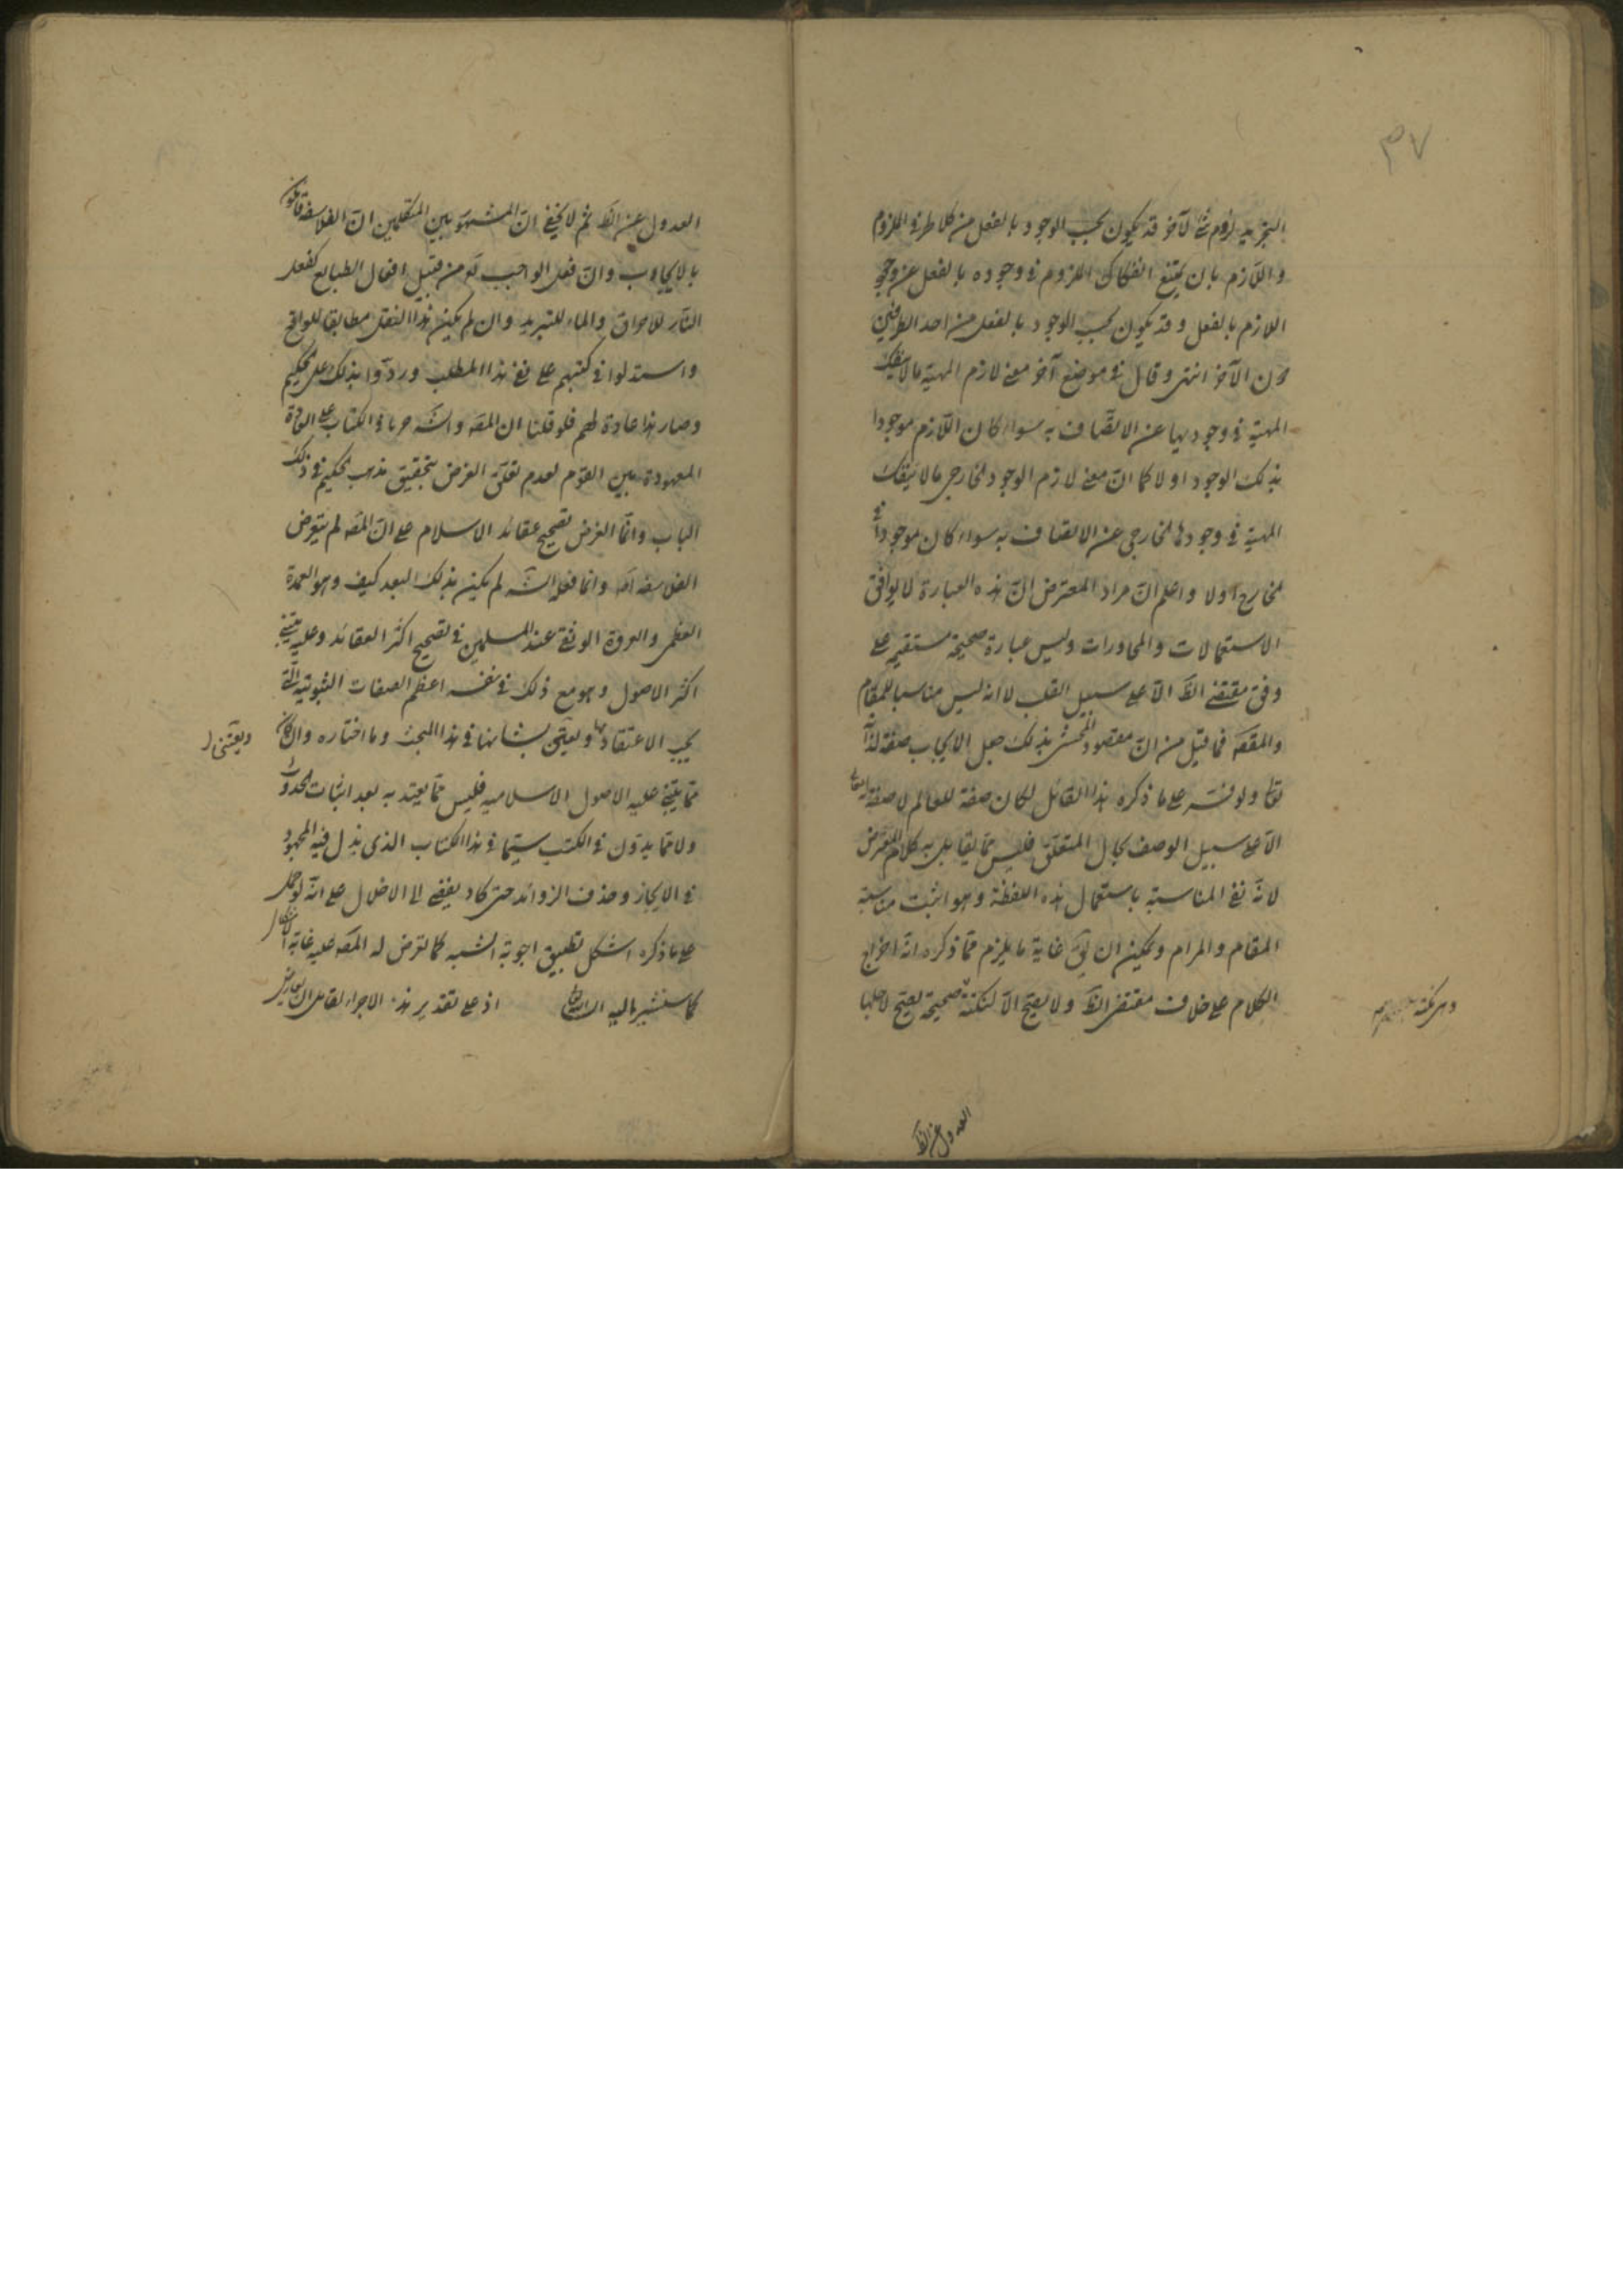 ٣٧
التجريد لزوم شئ لآخر قد يكون بحسب الوجود بالفعل من كلا طرفى الملزوم
واللازم بان يمتنع انفكاك الملزوم فى وجوده بالفعل عن وجود
اللازم بالفعل وقد يكون بحسب الوجود بالفعل من احد الطرفين
دون الآخر انتهى وقال فى موضع آخر معنى لازم المهية ما لا ينفك
المهية فى وجوديها عن الاتصاف به سواء كان اللازم موجودا
بذلك الوجود او لا كما ان معنى لازم الوجود الخارجى ما لا ينفك
المهية فى وجودها الخارجى عن الاتصاف به سواء كان موجودا فى
الخارج او لا واعلم ان مراد المعترض ان هذه العبارة لا يوافق
الاستعمالات والمحاورات وليس عبارة صحيحة مستقيم على
وفق مقتضى الظ الا على سبيل القلب لا انه ليس مناسبا للمقام
والمقصد فما قيل من ان مقصود المحشى بذلك جعل الايجاب صفة لذاته
تعالى ولو فسر على ما ذكره هذا القائل لكان صفة للعالم لا صفة له تعالى
الا على سبيل الوصف بحال المتعلق فليس مما يقابل به كلام المعترض
لانه نفى المناسبة باستعمال هذه اللفظة وهو اثبت مناسبة
المقام والمرام ويمكن ان يق غاية ما يلزم مما ذكره انه اخراج
الكلام على خلاف مقتضى الظ ولا يصح الا لنكتة صحيحة يصح لاجلها
العدول عن الظ
العدول عن الظ ثم لا يخفى ان المشهور بين المتكلمين ان الفلاسفة قائلون
بالايجاب وان فعل الواجب تع من قبيل افعال الطبايع كفعل
النار للاحراق والماء للتبريد وان لم يكن هذا النقل مطابقا للواقع
واستدلوا فى كتبهم على نفى هذا المطلب وردوا بذلك على الحكيم
وصار هذا عادة لهم فلو قلنا ان المقصد والشه جريا فى الكتاب على العادة
المعهودة بين القوم لعدم تعلق الغرض بتحقيق مذهب الحكيم فى ذلك
الباب وانما الغرض تصحيح عقائد الاسلام على ان المصه لم يتعرض
الفلاسفة اصلا وانما فعله الشه لم يكن بذلك البعد كيف وهو العمدة
العظمى والعروة الوثقى عند المسلمين فى تصحيح اكثر العقائد وعليه يبتنى
اكثر الاصول وهو مع ذلك فى نفسه اعظم الصفات الثبوتية التى
يجب الاعتقاد بها ويعتنى بشانها فى هذا المبحث وما اختاره وان كان
ويعتنى
مما يبتنى عليه الاصول الاسلامية فليس مما يعتد به بعد اثبات الحدوث
ولا مما يدون فى الكتب سيما فى هذا الكتاب الذى بذل فيه المجهود
فى الايجاز وحذف الزوائد حتى كاد يفضى الى الاخلال على انه لو حمل
على ما ذكره اشكل تطبيق اجوبة الشبه كما تعرض له المصه عليه غاية الاشكال
كما سنشير اليه اذ على تقدير هذه الاجراء لقائل ان يعارض